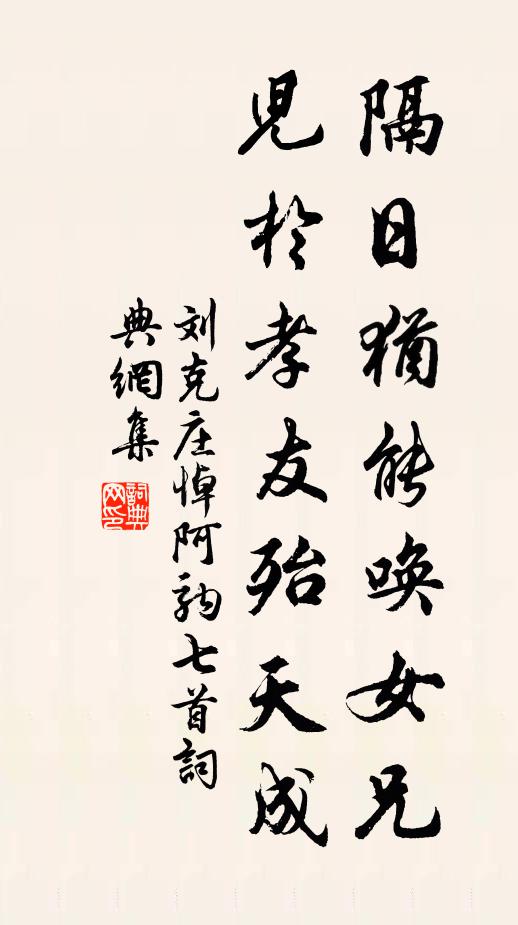 隔日猶能喚女兄
兒於孝友殆天成
刘克庄悼阿駒七首詞
典網集
詞典
网印